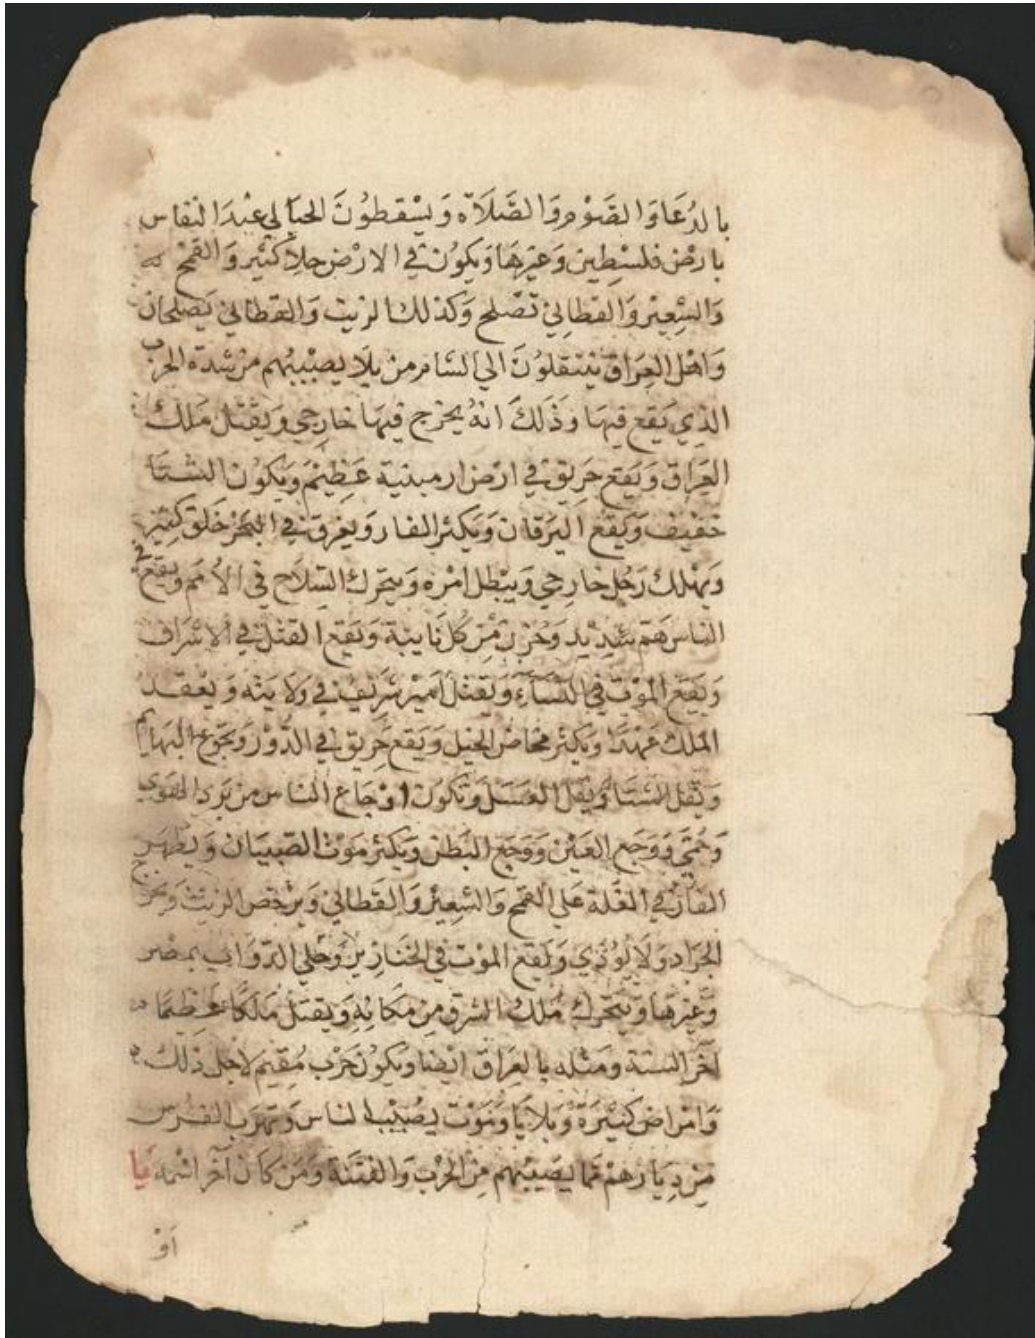 بالدُعَا وَالصَوْم وَالصَّلَاة وَيسْقطوُنَ الحبَالي عِندَ النفاس
بارض فلسْطِين وَغيْرهَا وَيكوُن في الارْض جلاكثير وَالقمْح
وَالشعِيْر وَالقطاني تصْلح وَكذلك الزيت وَالقطاني يَصْلحان
وَاهْل العِرَاق يَنتقلوُنَ الي الشام من يلا يصيْبهُم من شدة الحرب
الذِي يَقع فيهَا وَذَلكَ انهُ يخرْج فيهَا خارجي وَيقتل مَلك
العِرَاق وَيَقع حَريق في ارْض ارمينية عَظِيْم وَيكوُن الشتا
خَفيف وَيَقع اليَرقان وَيكثر الفار وَيغرق في البَحْر خَلق كثِير
وَيهْلك رَجُل خارجي وَيبْطل امْره وَيتحرك السِّلاح في الاُمَم وَيقع في
الناس هَم شدِيد وَحُزن من كل نايبَة وَيقع القتل في الاشرَاف
وَيَقع المَوْت في النسَآءِ وَيقتل امير شريْف في وِلايَته وَيعْقد
الملك عهْدًا وَيكثر مخاض الخيل وَيقع حَريق في الدُور وَتجوع البهَايم
وَيقل الشتا وَيقل العَسَل وَتكوُن اوْجَاع الناس من بَرد القوي
وَحُمّي وَوَجع العَيْن وَوَجَع البَطن وَيكثر مَوْت الصبيَان وَيظهر
الفار في الغلة عَلي القمْح وَالشعِيْر وَالقطاني وَيرْخص الزيت وَيخرج
الجرَاد وَلَا يُوذي وَيقع المَوْت في الخنازير وَحلي الدوَاب بمصر
وَغيْرهَا وَيتحرك مَلك الشرق مِن مَكانِهِ وَيقتل مَلكًا عَظيمًا
آخر السَنة وَمثله بالعِرَاق ايْضا وَيكوُن حَرْب مُقيم لاجْل ذَلك
وَامْرَاض كثيْرَة وَبلايَا وَمَوْت يصُيْب الناس وَتهرب الفرس
من دِيَارهم مما يصيْبهم مِن الحرْب وَالفتنَة وَمَن كان آخر اسْمه يا
اوْ